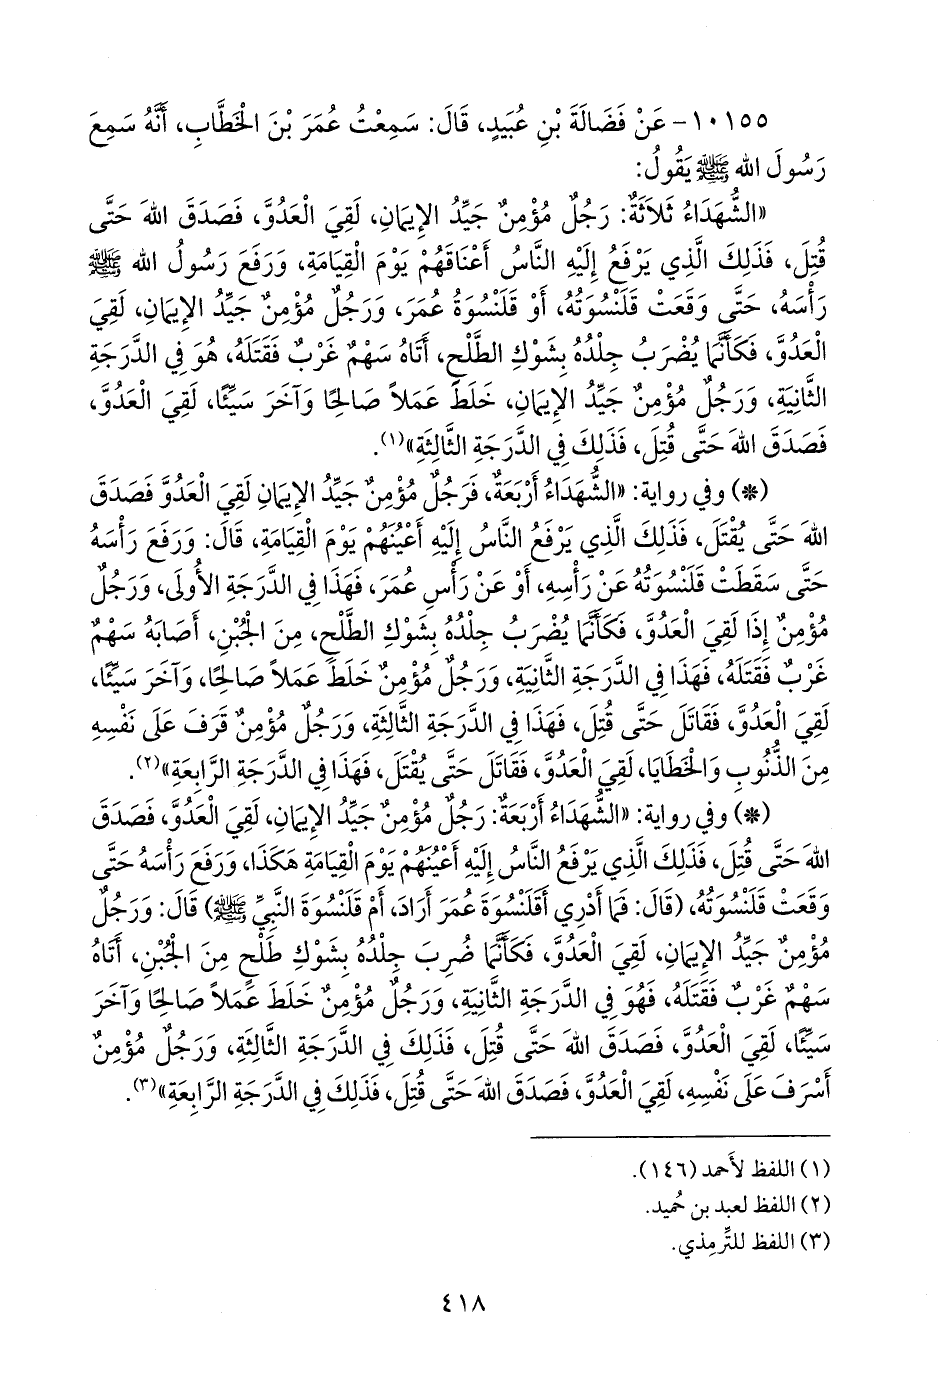 ١٠١٥٥ - عَنْ فَضَالَةَ بْنِ عُبَيدٍ، قَالَ: سَمِعْتُ عُمَرَ بْنَ الْخَطَّابِ، أَنَّهُ سَمِعَ
رَسُولَ اللهِ ﷺ يَقُولُ:
«الشُّهَدَاءُ ثَلَاثَةٌ: رَجُلٌ مُؤْمِنٌ جَيِّدُ الإِيمَانِ، لَقِيَ الْعَدُوَّ، فَصَدَقَ اللهَ حَتَّى
قُتِلَ، فَذَلِكَ الَّذِي يَرْفَعُ إِلَيْهِ النَّاسُ أَعْنَاقَهُمْ يَوْمَ الْقِيَامَةِ، وَرَفَعَ رَسُولُ اللهِ ﷺ
رَأْسَهُ، حَتَّى وَقَعَتْ قَلَنْسُوَتُهُ، أَوْ قَلَنْسُوَةُ عُمَرَ، وَرَجُلٌ مُؤْمِنٌ جَيِّدُ الإِيمَانِ، لَقِيَ
الْعَدُوَّ، فَكَأَنَّمَا يُضْرَبُ جِلْدُهُ بِشَوْكِ الطَّلْحِ، أَتَاهُ سَهْمٌ غَرْبٌ فَقَتَلَهُ، هُوَ فِي الدَّرَجَةِ
الثَّانِيَةِ، وَرَجُلٌ مُؤْمِنٌ جَيِّدُ الإِيمَانِ، خَلَطَ عَمَلاً صَالِحًا وَآخَرَ سَيِّئًا، لَقِيَ الْعَدُوَّ،
فَصَدَقَ اللهَ حَتَّى قُتِلَ، فَذَلِكَ فِي الدَّرَجَةِ الثَّالِثَةِ»(١).
(*) وفي رواية: «الشُّهَدَاءُ أَرْبَعَةٌ، فَرَجُلٌ مُؤْمِنٌ جَيِّدُ الإِيمَانِ لَقِيَ الْعَدُوَّ فَصَدَقَ
اللهَ حَتَّى يُقْتَلَ، فَذَلِكَ الَّذِي يَرْفَعُ النَّاسُ إِلَيْهِ أَعْيُنَهُمْ يَوْمَ الْقِيَامَةِ، قَالَ: وَرَفَعَ رَأْسَهُ
حَتَّى سَقَطَتْ قَلَنْسُوَتُهُ عَنْ رَأْسِهِ، أَوْ عَنْ رَأْسِ عُمَرَ، فَهَذَا فِي الدَّرَجَةِ الأُولَى، وَرَجُلٌ
مُؤْمِنٌ إِذَا لَقِيَ الْعَدُوَّ، فَكَأَنَّمَا يُضْرَبُ جِلْدُهُ بِشَوْكِ الطَّلْحِ، مِنَ الْجُبْنِ، أَصَابَهُ سَهْمٌ
غَرْبٌ فَقَتَلَهُ، فَهَذَا فِي الدَّرَجَةِ الثَّانِيَةِ، وَرَجُلٌ مُؤْمِنٌ خَلَطَ عَمَلاً صَالِحًا، وَآخَرَ سَيِّئًا،
لَقِيَ الْعَدُوَّ، فَقَاتَلَ حَتَّى قُتِلَ، فَهَذَا فِي الدَّرَجَةِ الثَّالِثَةِ، وَرَجُلٌ مُؤْمِنٌ قَرَفَ عَلَى نَفْسِهِ
مِنَ الذُّنُوبِ وَالْخَطَايَا، لَقِيَ الْعَدُوَّ، فَقَاتَلَ حَتَّى يُقْتَلَ، فَهَذَا فِي الدَّرَجَةِ الرَّابِعَةِ»(٢).
(*) وفي رواية: «الشُّهَدَاءُ أَرْبَعَةٌ: رَجُلٌ مُؤْمِنٌ جَيِّدُ الإِيمَانِ، لَقِيَ الْعَدُوَّ، فَصَدَقَ
اللهَ حَتَّى قُتِلَ، فَذَلِكَ الَّذِي يَرْفَعُ النَّاسُ إِلَيْهِ أَعْيُنَهُمْ يَوْمَ الْقِيَامَةِ هَكَذَا، وَرَفَعَ رَأْسَهُ حَتَّى
وَقَعَتْ قَلَنْسُوَتُهُ، (قَالَ: فَمَا أَدْرِي أَقَلَنْسُوَةَ عُمَرَ أَرَادَ، أَمْ قَلَنْسُوَةَ النَّبِيِّ ﷺ) قَالَ: وَرَجُلٌ
مُؤْمِنٌ جَيِّدُ الإِيمَانِ، لَقِيَ الْعَدُوَّ، فَكَأَنَّمَا ضُرِبَ جِلْدُهُ بِشَوْكِ طَلْحٍ مِنَ الْجُبْنِ، أَتَاهُ
سَهْمٌ غَرْبٌ فَقَتَلَهُ، فَهُوَ فِي الدَّرَجَةِ الثَّانِيَةِ، وَرَجُلٌ مُؤْمِنٌ خَلَطَ عَمَلاً صَالِحًا وَآخَرَ
سَيِّئًا، لَقِيَ الْعَدُوَّ، فَصَدَقَ اللهَ حَتَّى قُتِلَ، فَذَلِكَ فِي الدَّرَجَةِ الثَّالِثَةِ، وَرَجُلٌ مُؤْمِنٌ
أَسْرَفَ عَلَى نَفْسِهِ، لَقِيَ الْعَدُوَّ، فَصَدَقَ اللهَ حَتَّى قُتِلَ، فَذَلِكَ فِي الدَّرَجَةِ الرَّابِعَةِ»(٣).
(١) اللفظ لأَحمد (١٤٦).
(٢) اللفظ لعبد بن حُميد.
(٣) اللفظ للتِّرمِذي.
٤١٨